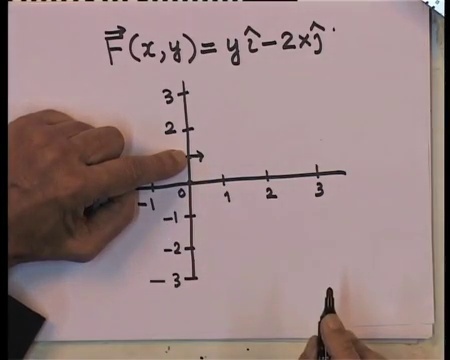 F⃗(x,y) = y î − 2x ĵ
3
2
-1 0 1 2 3
-1
-2
-3